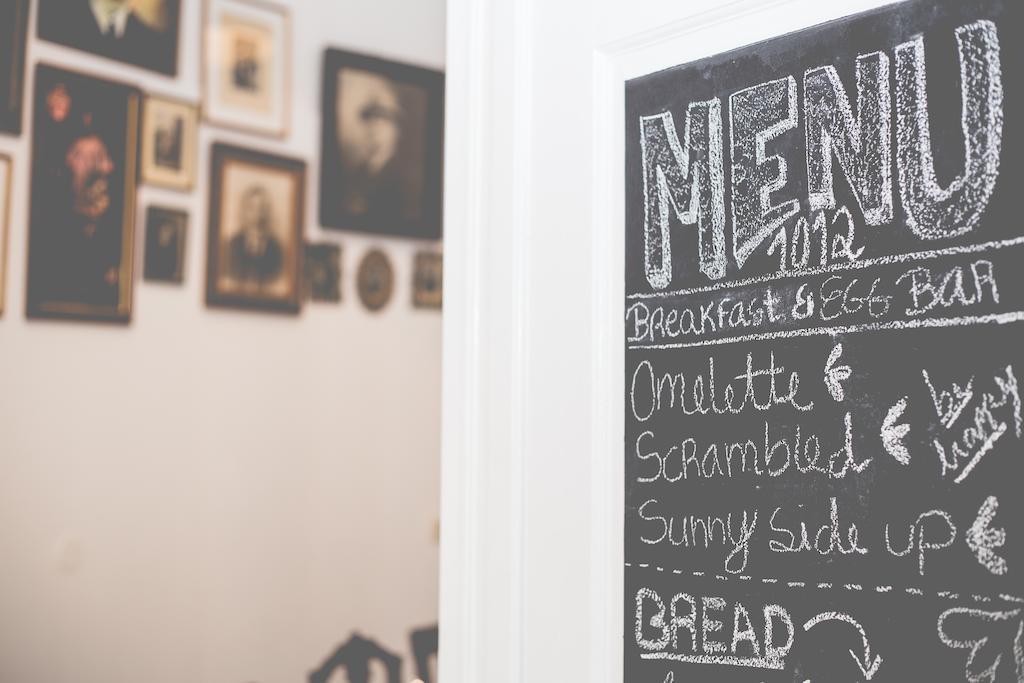 MENU
1012
Breakfast & EGG BAR
Omelette
Scrambled
by
Harry
Sunny side up
BREAD